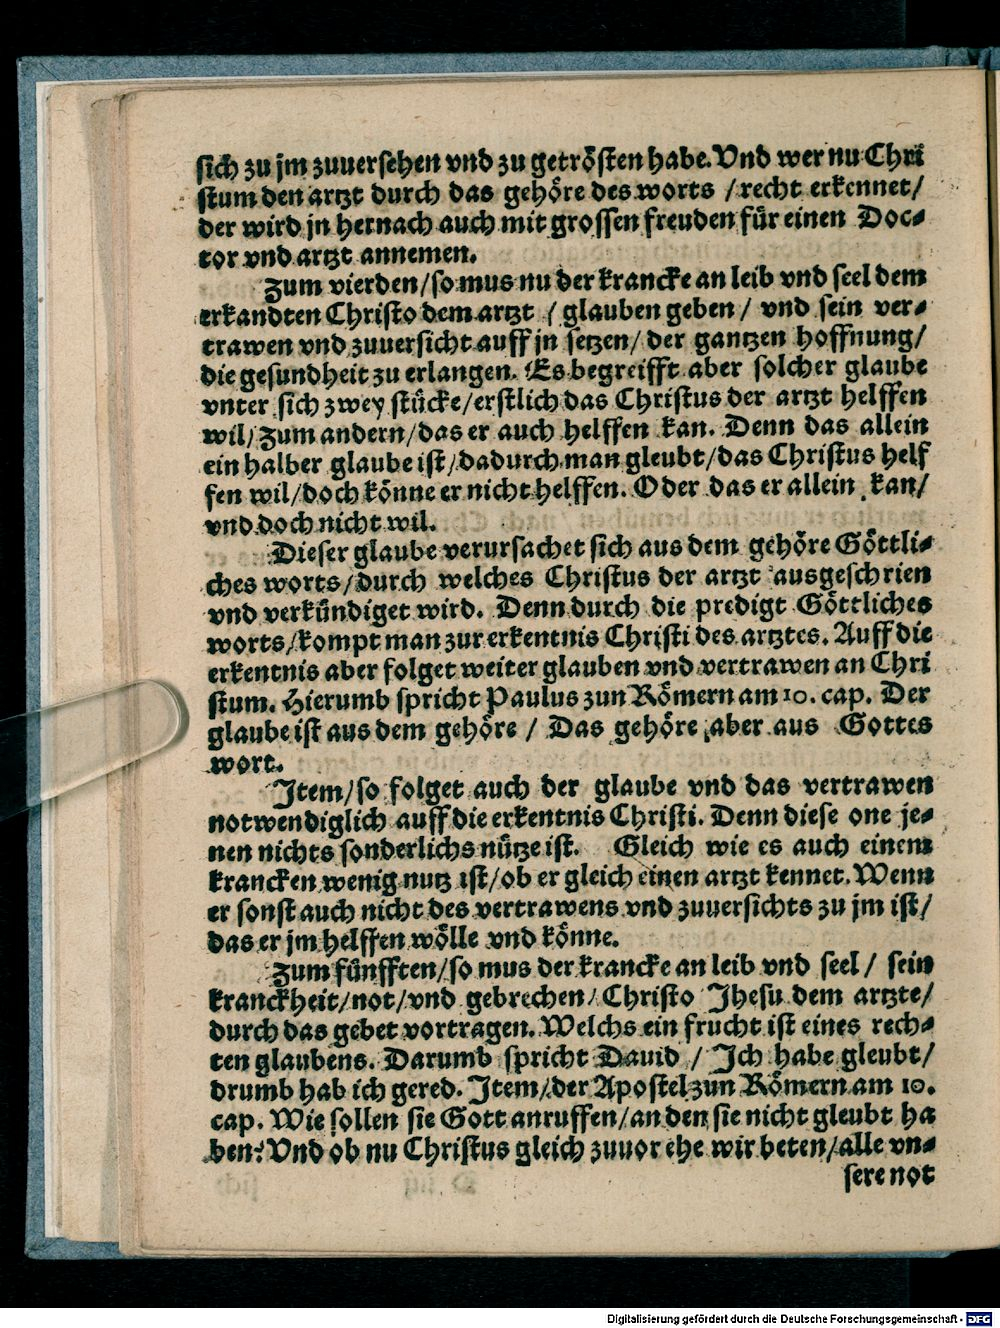 sich zu jm zuuersehen vnd zu getrösten habe. Vnd wer nu Chri
stum den artzt durch das gehöre des worts / recht erkennet/
der wird jn hernach auch mit grossen freuden für einen Doc-
tor vnd artzt annemen.
Zum vierden/so mus nu der krancke an leib vnd seel dem
erkandten Christo dem artzt / glauben geben / vnd sein ver-
trawen vnd zuuersicht auff jn setzen/ der gantzen hoffnung/
die gesundheit zu erlangen. Es begreifft aber solcher glaube
vnter sich zwey stücke/erstlich das Christus der artzt helffen
wil/ Zum andern/das er auch helffen kan. Denn das allein
ein halber glaube ist/dadurch man gleubt/das Christus helf
fen wil/doch könne er nicht helffen. Oder das er allein kan/
vnd doch nicht wil.
Dieser glaube verursachet sich aus dem gehöre Göttli-
ches worts/durch welches Christus der artzt ausgeschrien
vnd verkündiget wird. Denn durch die predigt Göttliches
worts/kompt man zur erkentnis Christi des artztes. Auff die
erkentnis aber folget weiter glauben vnd vertrawen an Chri
stum. Hierumb spricht Paulus zun Römern am 10. cap. Der
glaube ist aus dem gehöre / Das gehöre aber aus Gottes
wort.
Item/so folget auch der glaube vnd das vertrawen
notwendiglich auff die erkentnis Christi. Denn diese one je-
nen nichts sonderlichs nütze ist. Gleich wie es auch einem
krancken wenig nutz ist/ob er gleich einen artzt kennet. Wenn
er sonst auch nicht des vertrawens vnd zuuersichts zu jm ist/
das er jm helffen wölle vnd könne.
Zum fünfften/so mus der krancke an leib vnd seel / sein
kranckheit/not/vnd gebrechen/ Christo Jhesu dem artzte/
durch das gebet vortragen. Welchs ein frucht ist eines rech-
ten glaubens. Darumb spricht Dauid / Ich habe gleubt/
drumb hab ich gered. Item/der Apostel zun Römern am 10.
cap. Wie sollen sie Gott anruffen/an den sie nicht gleubt ha
ben? Vnd ob nu Christus gleich zuuor ehe wir beten/alle vn-
sere not
Digitalisierung gefördert durch die Deutsche Forschungsgemeinschaft - DFG